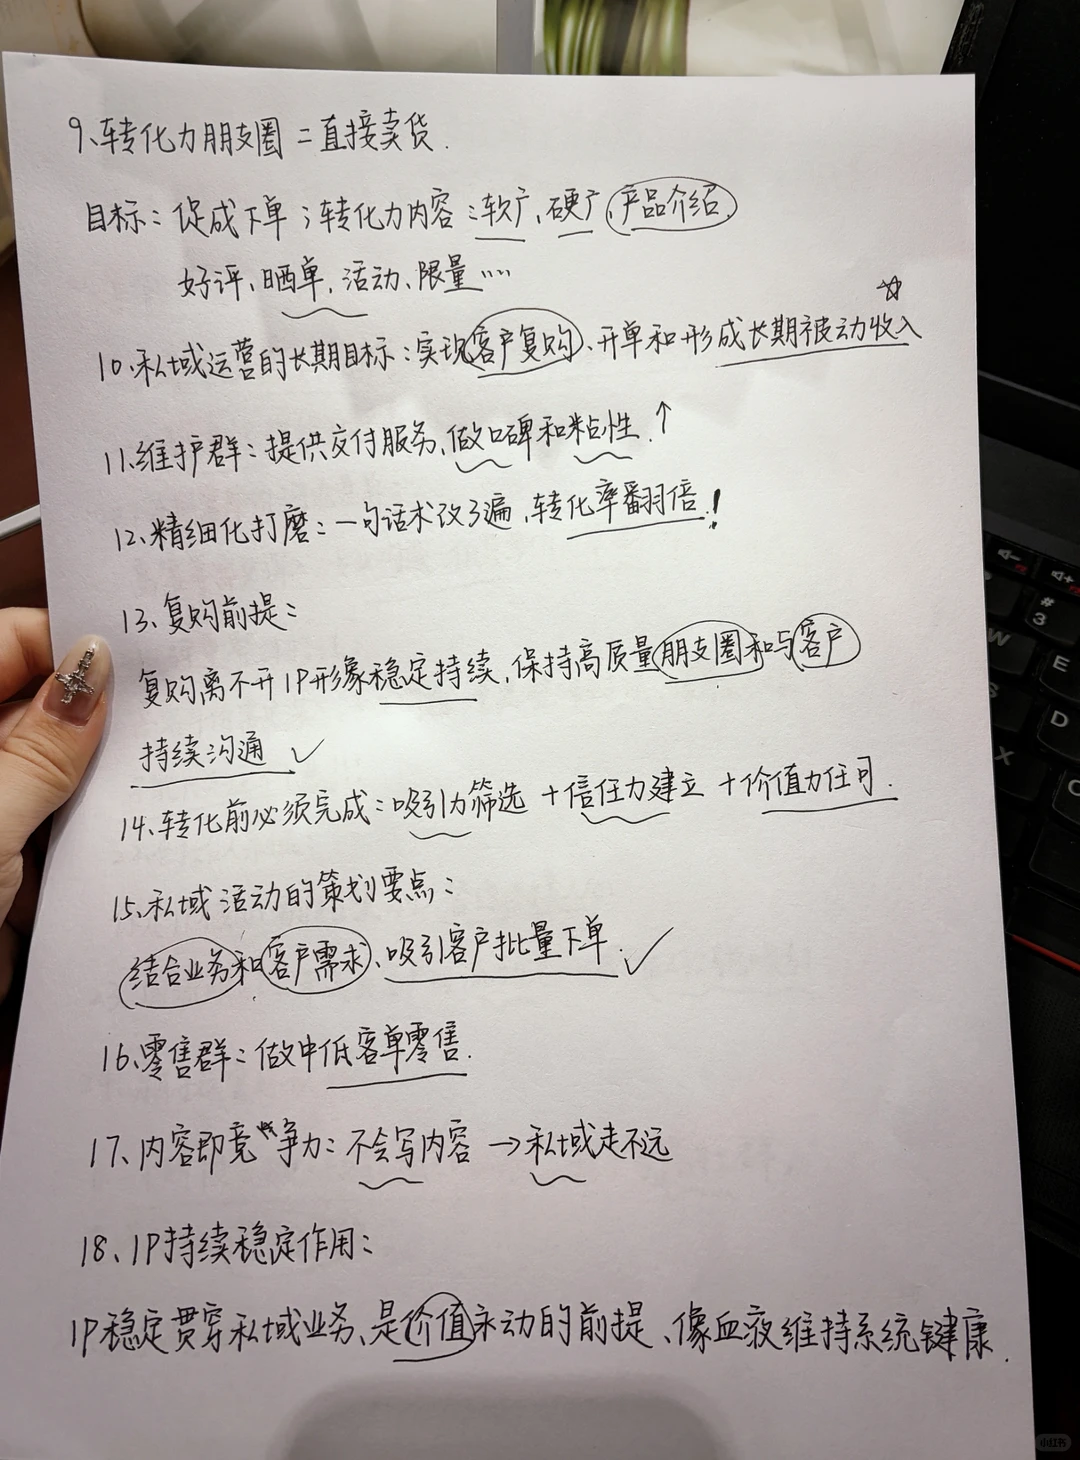 9、转化力朋友圈=直接卖货.
目标:促成下单;转化力内容:软广、硬广、产品介绍、
好评、晒单、活动、限量……
10、私域运营的长期目标:实现客户复购、开单和形成长期被动收入
11、维护群:提供交付服务、做口碑和粘性.↑
12、精细化打磨:一句话术改3遍,转化率翻倍!
13、复购前提:
复购离不开IP形象稳定持续,保持高质量朋友圈和与客户
持续沟通✓
14、转化前必须完成:吸引力筛选+信任力建立+价值力任可.
15、私域活动的策划要点:
结合业务和客户需求、吸引客户批量下单.✓
16、零售群:做中低客单零售.
17、内容即竞争力:不会写内容→私域走不远
18、IP持续稳定作用:
IP稳定贯穿私域业务、是价值永动的前提、像血液维持系统健康.
#
3
W
E
S
D
X
C
小红书